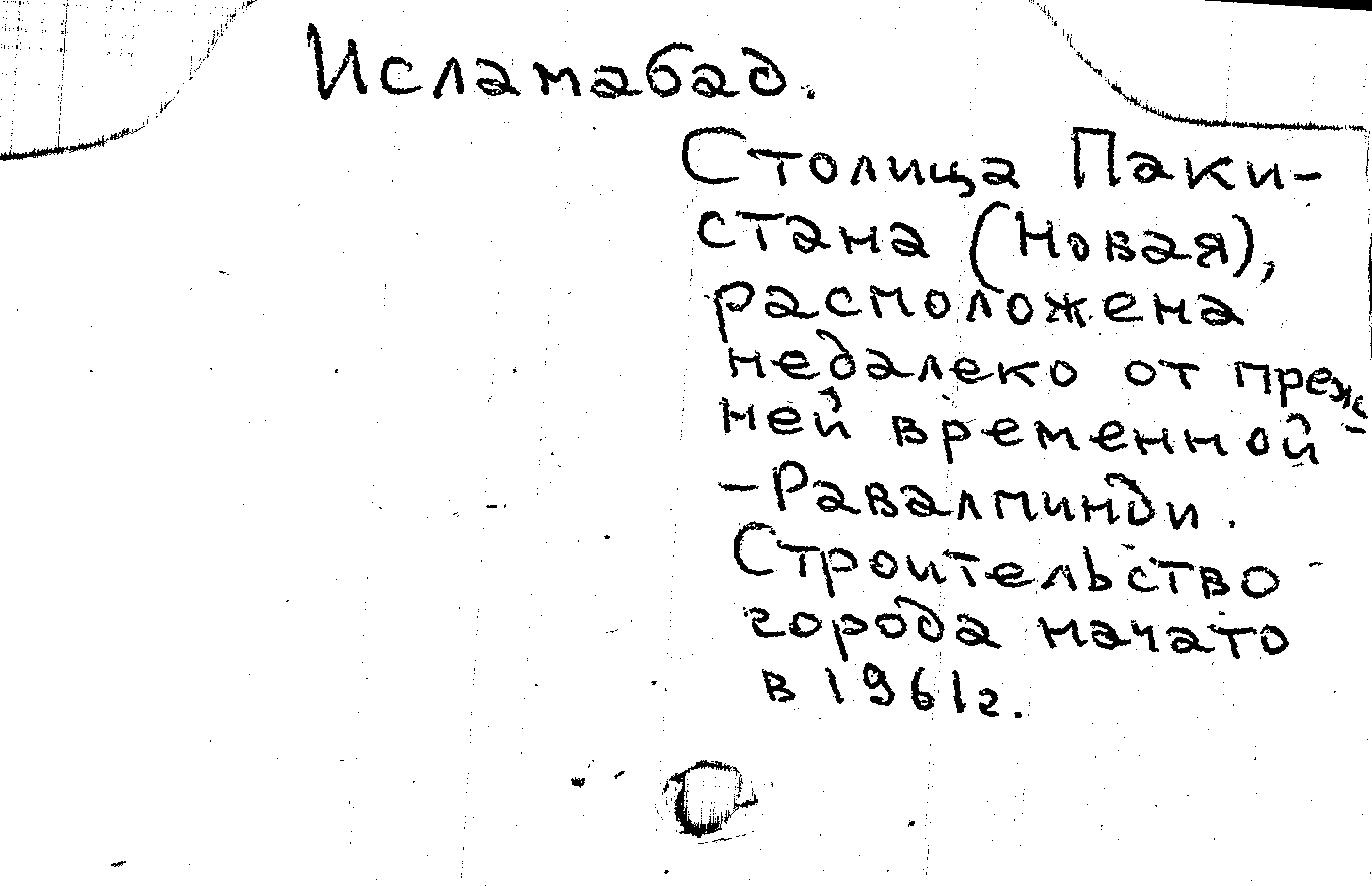 Исламабад.
Столица Паки-
стана (Новая),
расположена
недалеко от преж-
ней временной
-Равалпинди.
Строительство
города начато
в 1961г.